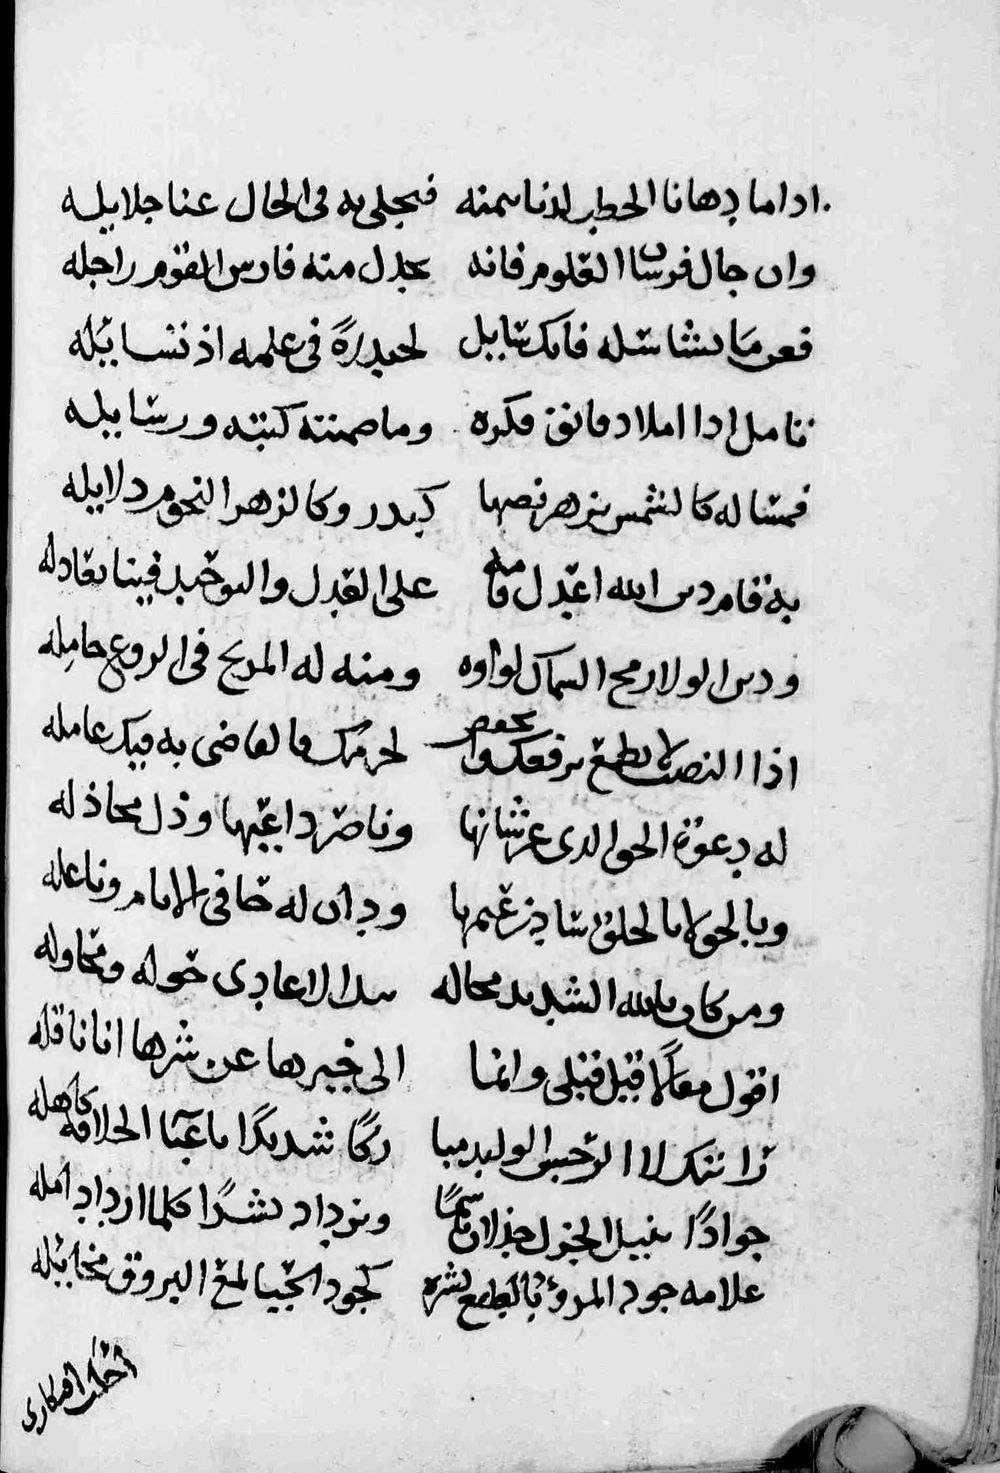 اذا ما دهانا الخطب لذنا بيمنه فيجلى به في الحال عنا جلايله
وان جال فرسان العلوم فانه يجدل منه فارس القوم راجله
فعن ما تشا سله فانك سايل لحيدرة في علمه اذ تسايله
تامل اذا املا دقايق فكره وما ضمنته كتبه ورسايله
فمسا له كالشمس يزهر كبدر وكالزهر النجوم دلايله
به قام دين الله اعدل قامة على العدل والتوحيد فينا تعادله
ودين الولا رمح السماك لواوه ومنه له المريخ في الروع حامله
اذا النصب لا يطع برفعك والعاضى به فيك عامله
له دعوة الحق الذي عز شانها وناصر داعيها وذل محاذله
وبالحق لا بالخلق شاد زعيمها ودان له حافي الانام وناعله
ومن كان بالله الشديد محاله الاعادي حوله ومحاوله
اقول مقالا قيل قبلي وانما الى خيرها عن شرها انا ناقله
شديدا باعبا الخلافة كاهله
جوادا ينيل الجزل جذلان باسما ويزداد بشرا كلما ازداد امله
علامة جود المرء بالطبع بشره كجود الحيا لمع البروق مخايله